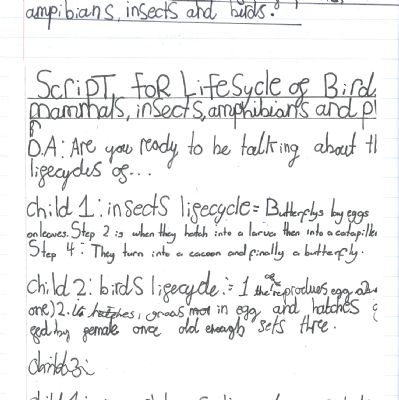 ampibians, insects and birds.
Script for Lifesycle of Bird
mammals, insects, amphibians and pl
D.A: Are you ready to be talking about th
ligecycles of...
child 1: insects ligecycle= Butterflys lay eggs
on leaves. Step 2 is when they hatch into a larva then into a catapiller
Step 4: They turn into a cacoon and finally a butterfly.
Child 2: birds ligecycle:= 1 the reproduces egg
one) 2. in egg and hatches
ged by gemale once old enough sets three.
child 3: